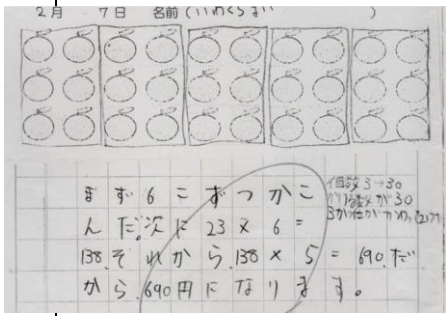 2月 7日 名前（いわくらまい）
まず6こずつかこ
んだ。次に23×6=
138.それから.138×5=690.だ
から.690円になります。
個数3→30